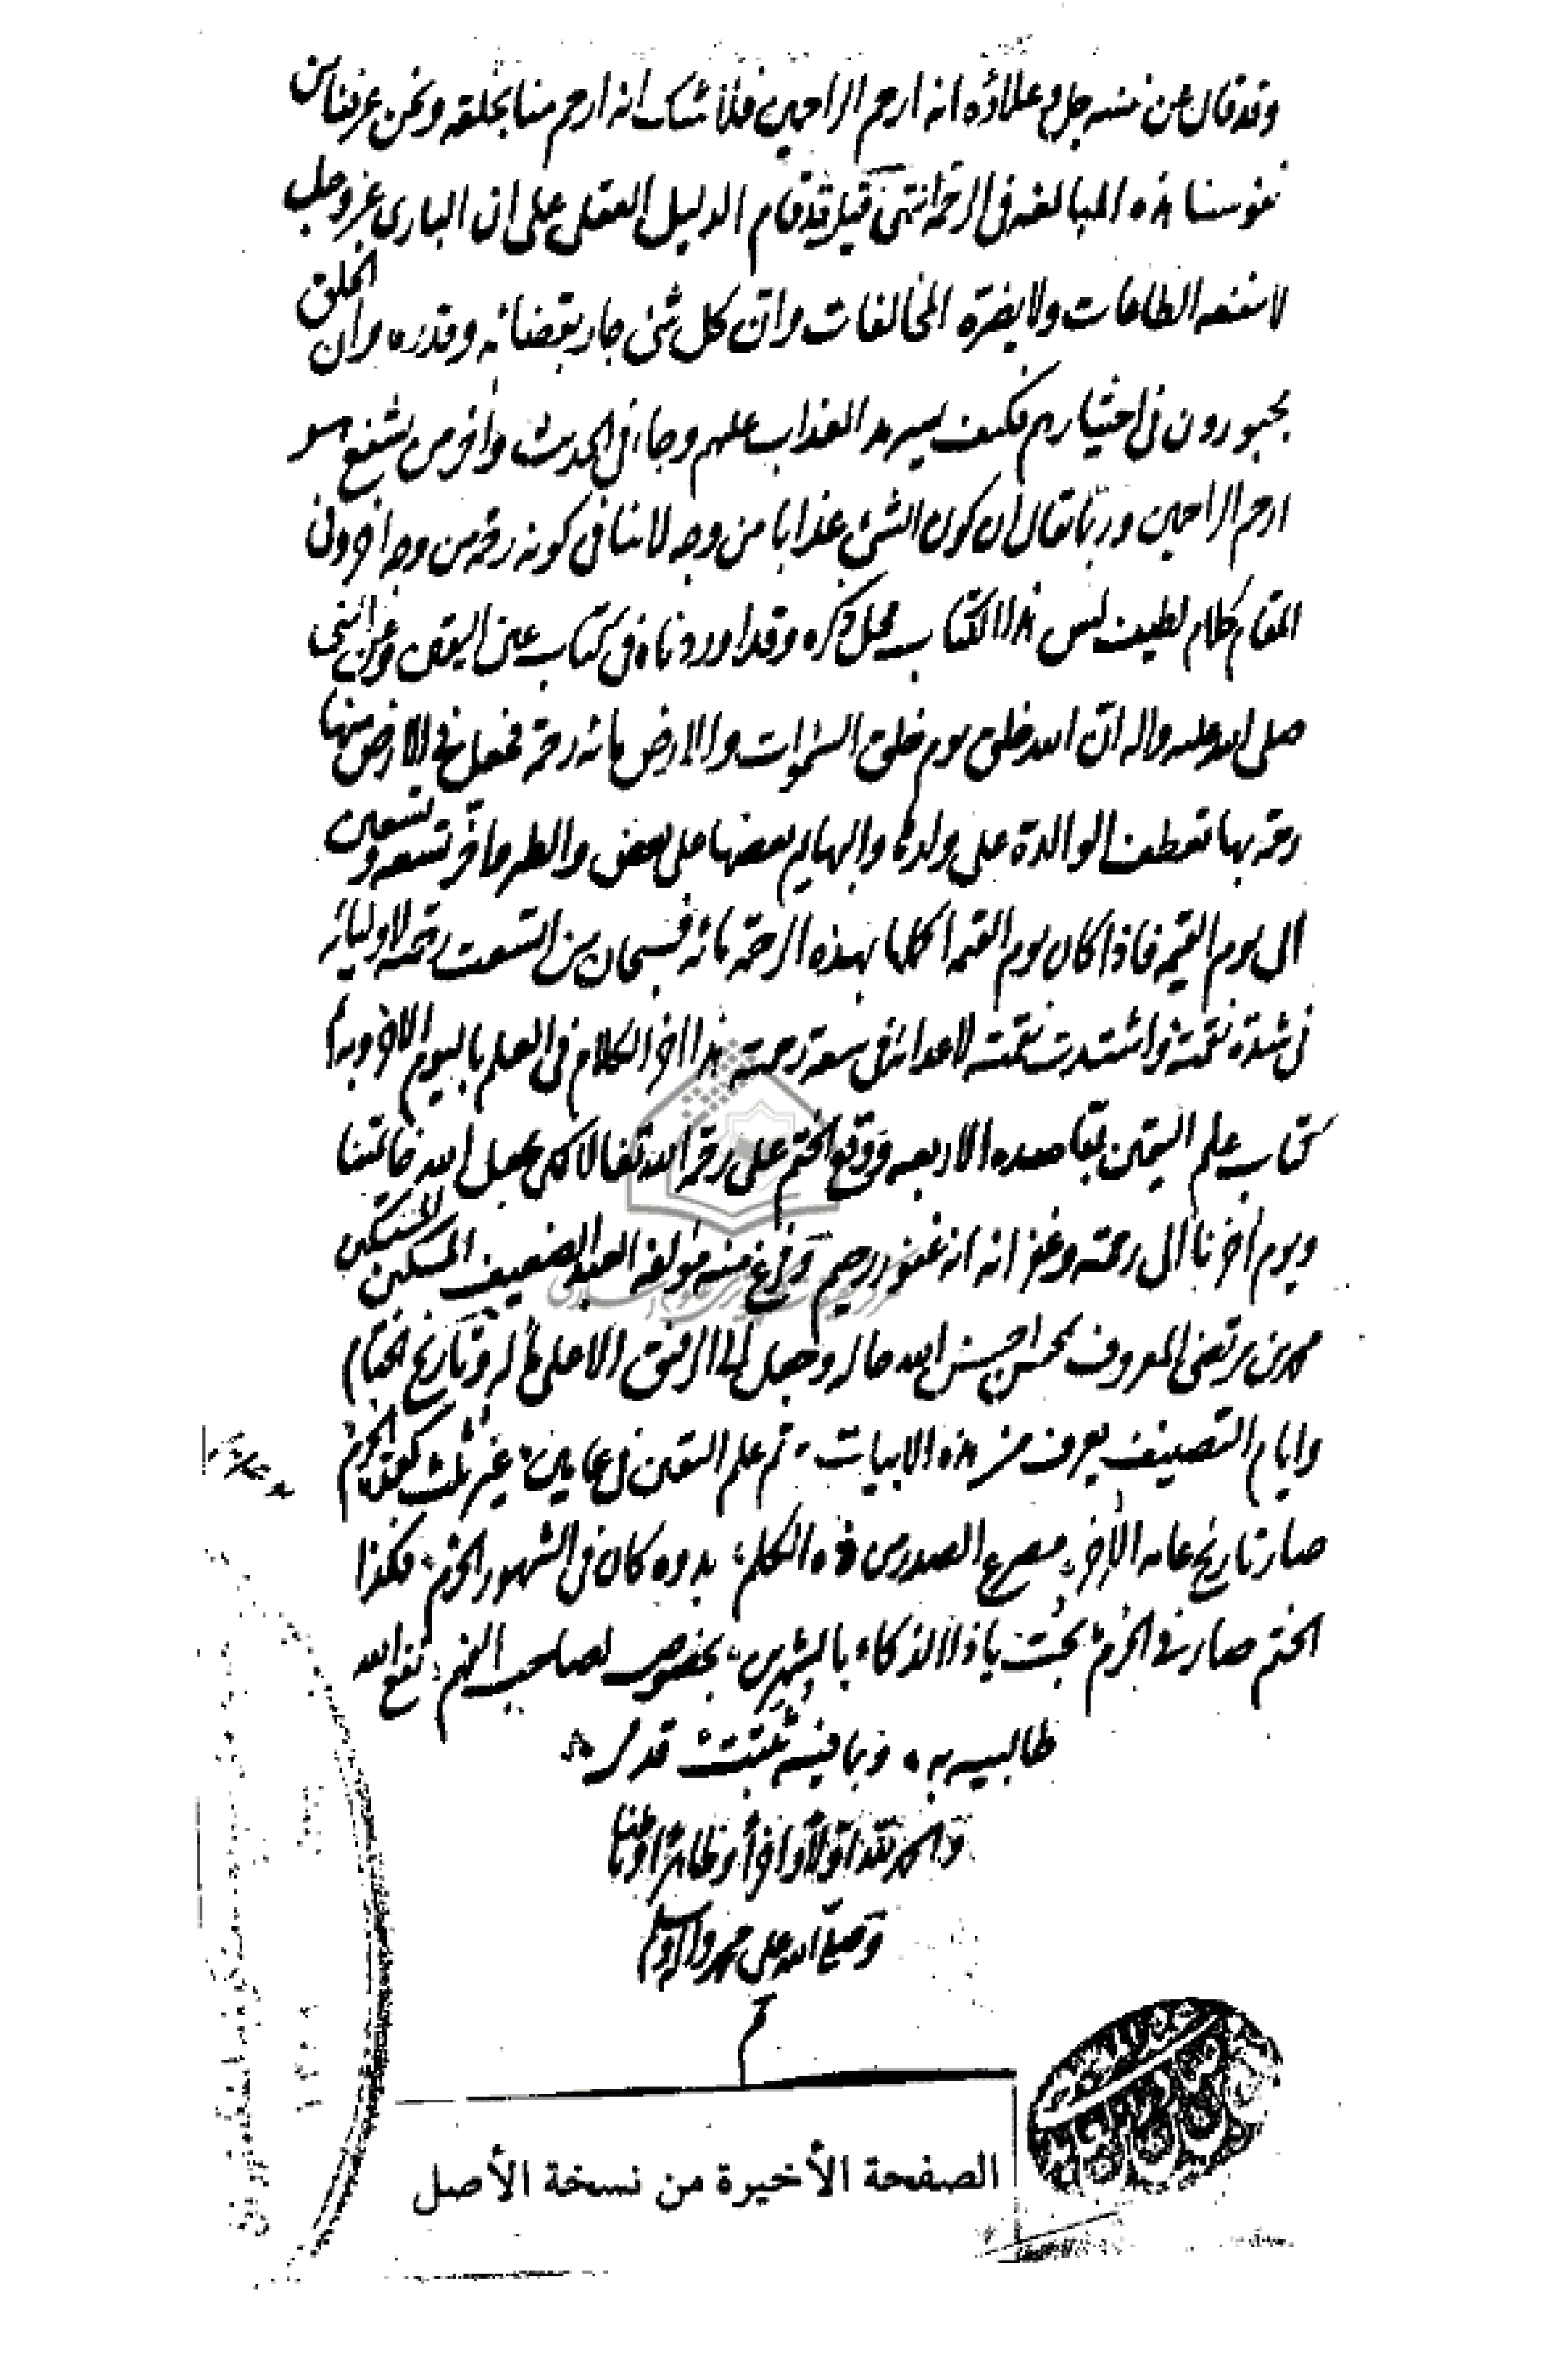 وقد قال عن نفسه جل وعلاؤه انه ارحم الراحمين فلا شك انه ارحم منا بخلقه ونحن عرفنا من
نفوسنا هذه المبالغه فى الرحمة انتهى قيل وقد قام الدليل العقلى على ان البارى عز وجل
لا تنفعه الطاعات ولا يضره المخالفات وان كل شئ جار بقضائه وقدره وان الخلق
مجبورون فى اختيارهم فكيف يسرمد العذاب عليهم وجاء فى الحديث واخر من يشفع هو
ارحم الراحمين وربما يقال ان كون الشئ عذابا من وجه لا ينافى كونه رحمة من وجه اخر وفى
المقام كلام لطيف ليس هذا الكتاب محل ذكره وقد اوردناه فى كتاب عين اليقين وعن النبى
صلى الله عليه واله ان الله خلق يوم خلق السموات والارض مائة رحمة فجعل فى الارض منها
رحمة بها تعطف الوالدة على ولدها والبهايم بعضها على بعض والطير واخر تسعه وتسعين
الى يوم القيمه فاذا كان يوم القيمه اكملها بهذه الرحمة مائة فسبحان من اتسعت رحمته لاوليائه
فى شدة نقمته واشتدت نقمته لاعدائه فى سعة رحمته هذا اخر الكلام فى العلم باليوم الاخر وبه تم
كتاب علم اليقين بمقاصده الاربعه ووقع الختم على رحمة الله تعالى كذلك يجعل الله خاتمتنا
ويوم اخرنا الى رحمته وغفرانه انه غفور رحيم وفرغ منه مؤلفه العبد الضعيف المسكين المستكين
محمد بن مرتضى المعروف بمحسن احسن الله حاله وجعل الى الرفيق الاعلى ماله وتاريخ الختام
وايام التصنيف يعرف من هذه الابيات تم علم اليقين فى عامين غير ثلث
صار تاريخ عامه الاخر مصرع الصدر من هذه الكلم بدوه كان فى الشهور الحرم فكذا
الختم صار فى الحرم بخت ياذا الذكاء بخصوص لصاحب الفهم نفع الله
طالبيه به وبما فيه ثبتت قدمى
والحمد لله اولا واخرا وظاهرا وباطنا
وصلى الله على محمد واله وسلم
م
الصفحة الأخيرة من نسخة الأصل